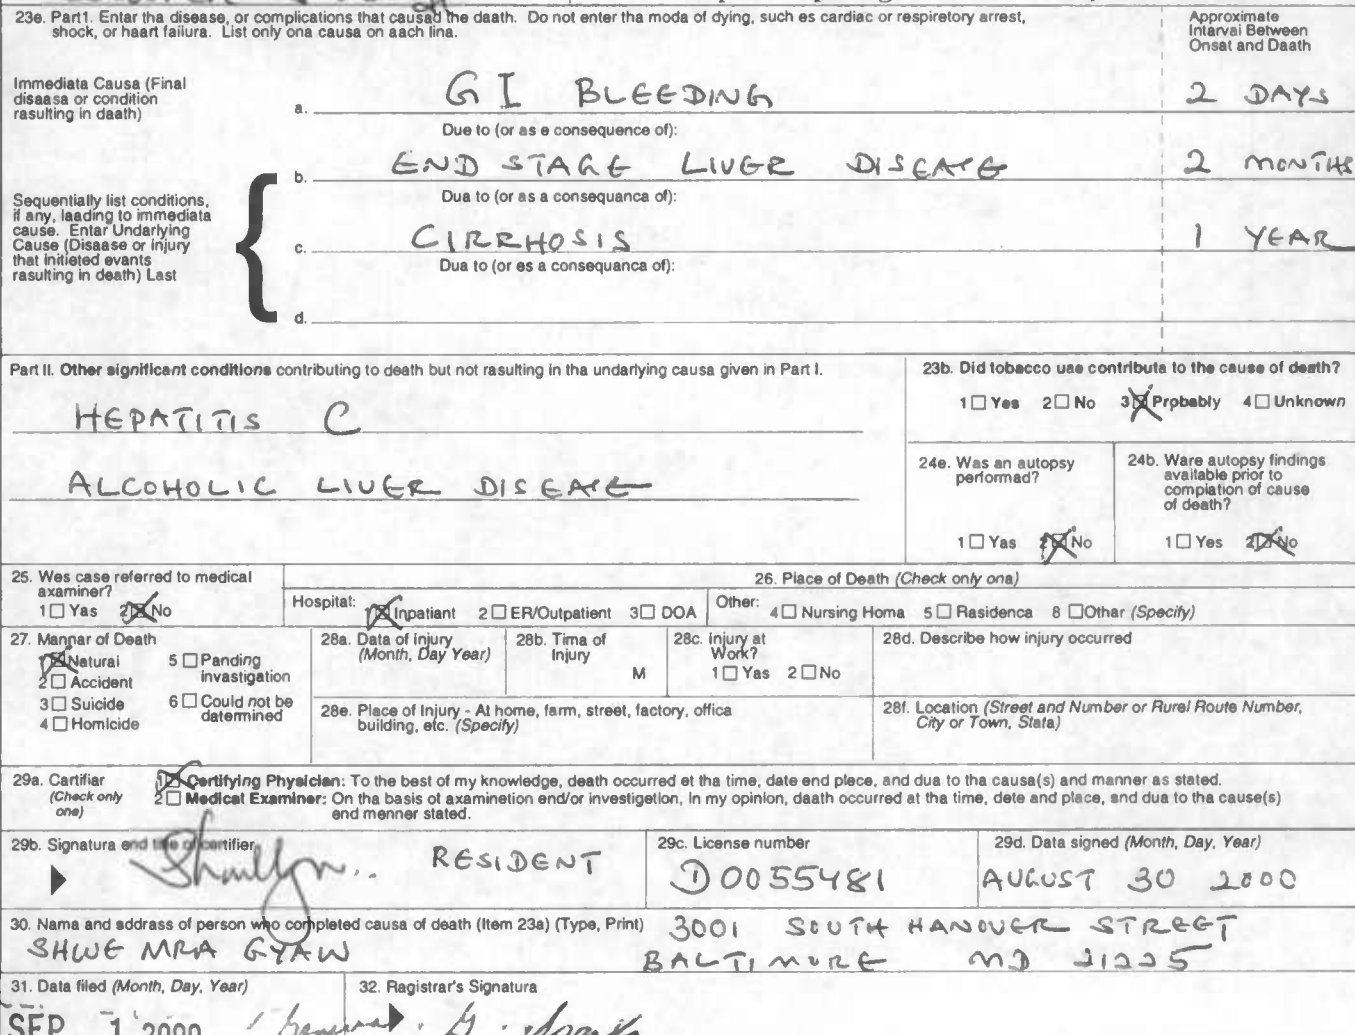 23e. Part1. Enter tha disease, or complications that causad the daath. Do not enter tha moda of dying, such es cardiac or respiretory arrest,
shock, or haart failura. List only ona causa on aach lina.
Approximate
Intarvai Between
Onsat and Daath
Immediata Causa (Final
disaasa or condition
rasulting in daath)
a. GI BLEEDING 2 DAYS
Due to (or as e consequence of):
b. END STAGE LIVER DISEASE 2 MONTHS
Dua to (or as a consequanca of):
Sequentially list conditions,
if any, laading to immediata
cause. Entar Underlying
Cause (Disaase or injury
that initieted evants
rasulting in death) Last
c. CIRRHOSIS 1 YEAR
Dua to (or es a consequanca of):
d.
Part II. Other significant conditions contributing to death but not rasulting in tha undarlying causa given in Part I.
HEPATITIS C
ALCOHOLIC LIVER DISEASE
23b. Did tobacco uae contributa to the cause of death?
1 □ Yes 2 □ No 3 ☒ Probably 4 □ Unknown
24e. Was an autopsy
performad?
1 □ Yas 2 ☒ No
24b. Ware autopsy findings
available prior to
compiation of cause
of death?
1 □ Yes 2 ☒ No
25. Wes case referred to medical
axaminer?
1 □ Yas 2 ☒ No
26. Place of Death (Check only ona)
Hospital: 1 ☒ Inpatiant 2 □ ER/Outpatient 3 □ DOA Other: 4 □ Nursing Homa 5 □ Rasidenca 8 □ Othar (Specify)
27. Mannar of Death
1 ☒ Naturai
2 □ Accident
3 □ Suicide
4 □ Homicide
5 □ Panding
invastigation
6 □ Could not be
determined
28a. Data of injury
(Month, Day Year)
28b. Tima of
Injury
M
28c. injury at
Work?
1 □ Yas 2 □ No
28d. Describe how injury occurred
28e. Place of Injury - At home, farm, street, factory, offica
building, etc. (Specify)
28f. Location (Street and Number or Rurel Route Number,
City or Town, Stata)
29a. Cartifiar
(Check only
one)
1 ☒ Certifying Physician: To the best of my knowledge, death occurred et tha time, date end plece, and dua to tha causa(s) and manner as stated.
2 □ Medicat Examiner: On tha basis ot axaminetion end/or investigetlon, in my opinion, daath occurred at tha time, dete and place, and dua to tha cause(s)
end menner stated.
29b. Signatura end title of certifier
RESIDENT
29c. License number
D0055481
29d. Data signed (Month, Day, Year)
AUGUST 30 2000
30. Name and address of person who completed causa of death (Item 23a) (Type, Print)
SHWE MRA GYAW
3001 SOUTH HANOVER STREET
BALTIMORE MD 21225
31. Data filed (Month, Day, Year)
SEP 1 2000
32. Ragistrar's Signatura